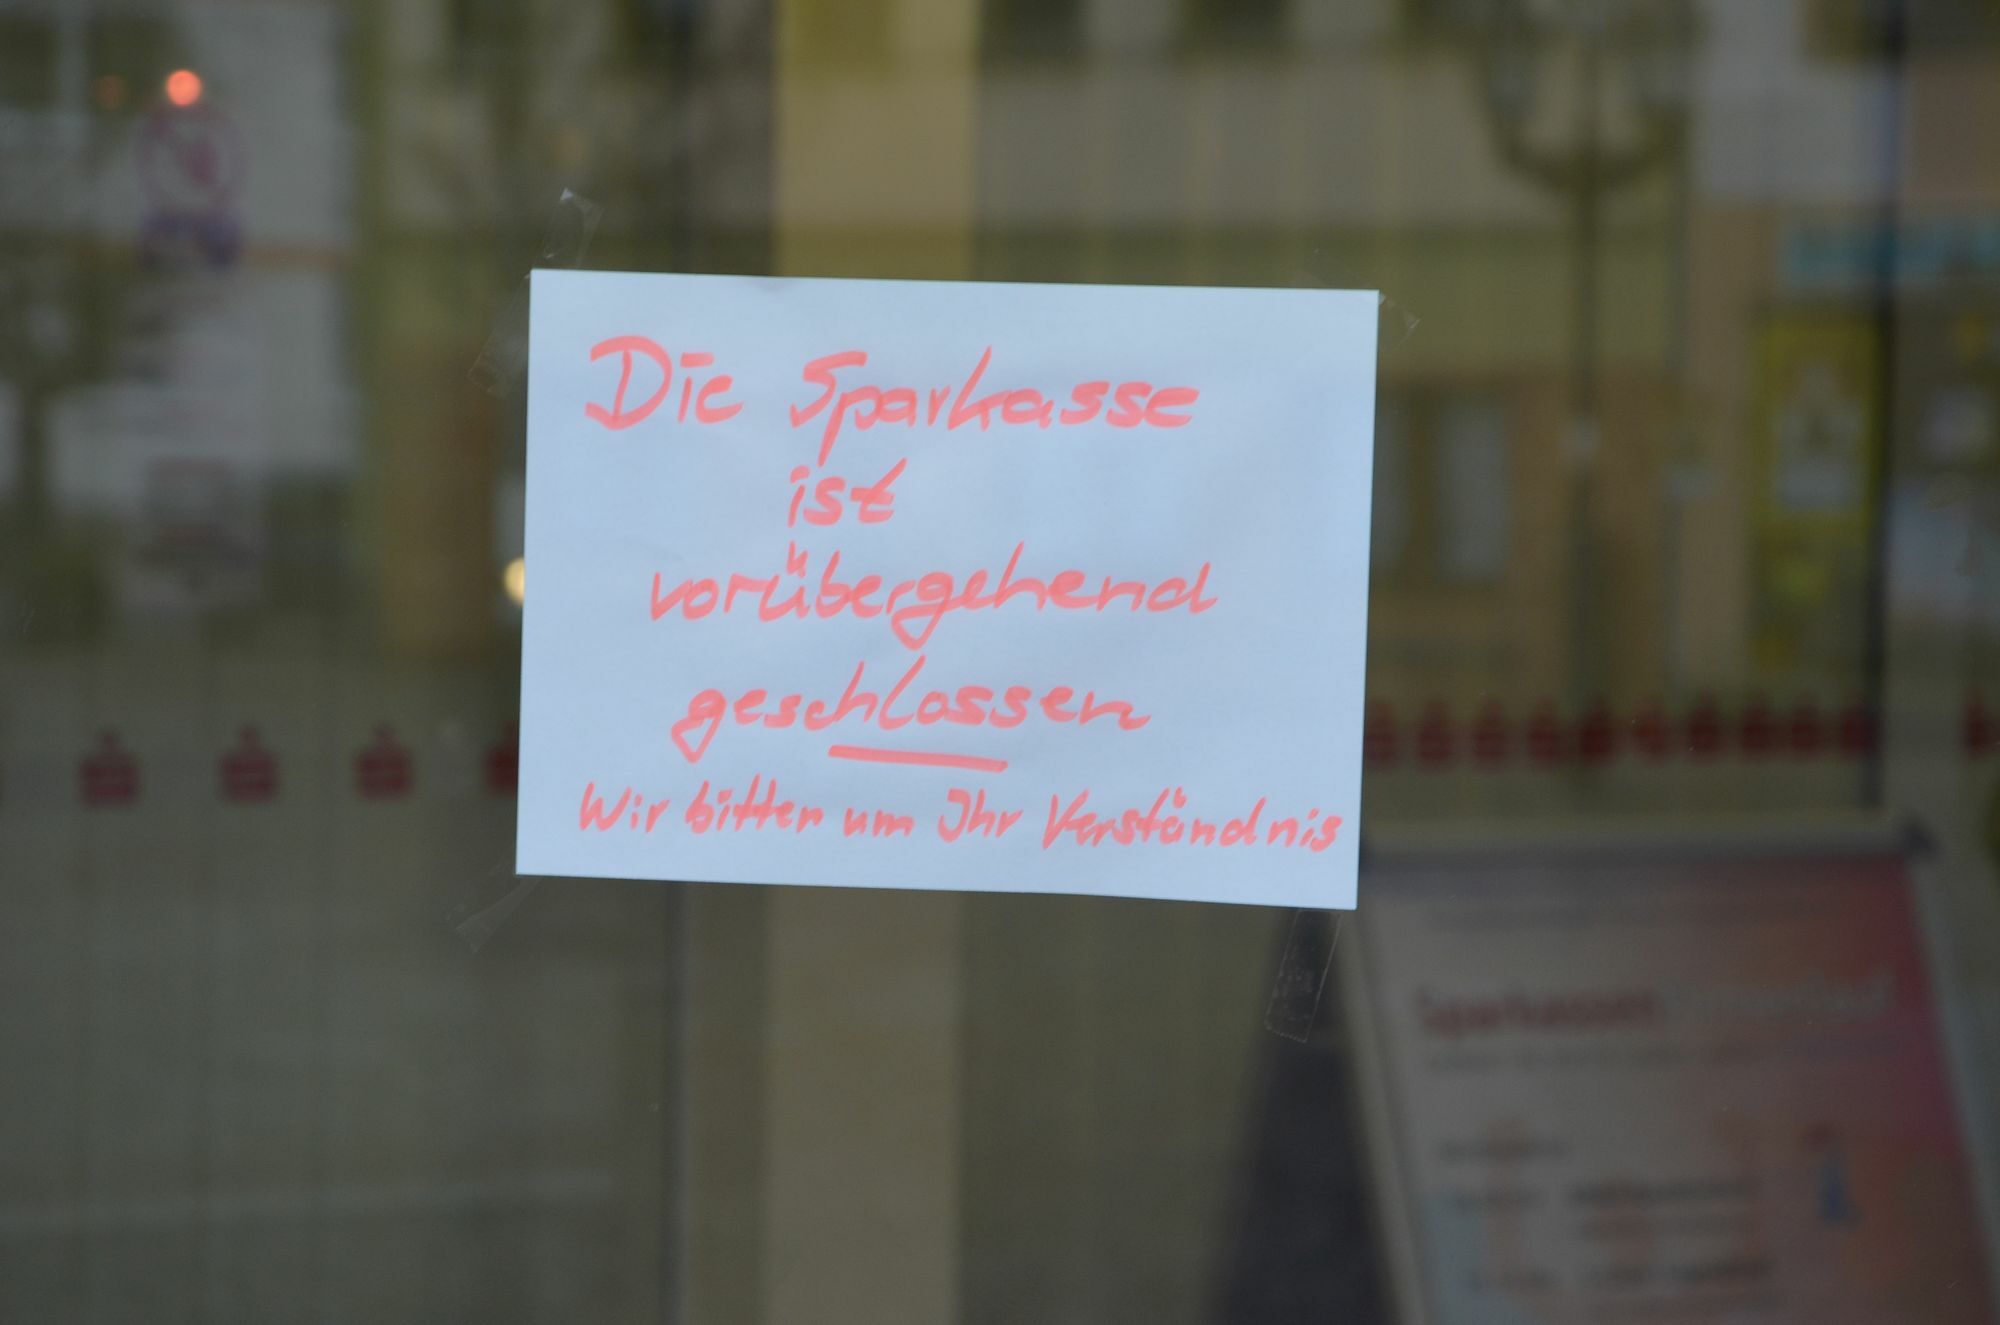 Die Sparkasse
ist
vorübergehend
geschlossen
Wir bitten um Ihr Verständnis
Sparkassen